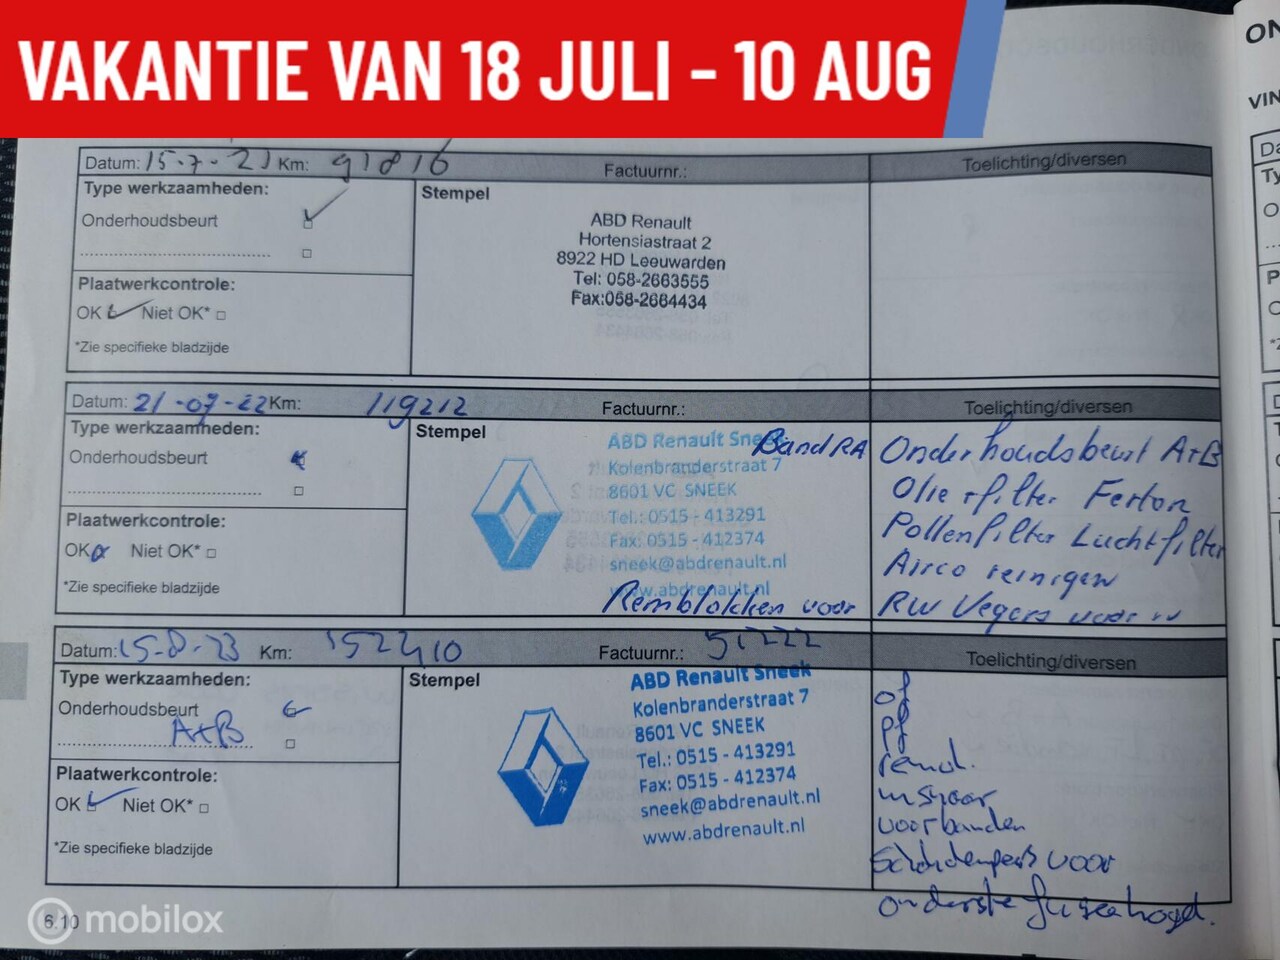 VAKANTIE VAN 18 JULI - 10 AUG
Datum: 15-7-21 Km: 91816 Factuurnr.: Toelichting/diversen
Type werkzaamheden:
Onderhoudsbeurt
Stempel
ABD Renault
Hortensiastraat 2
8922 HD Leeuwarden
Tel: 058-2663555
Fax:058-2664434
Plaatwerkcontrole:
OK Niet OK*
*Zie specifieke bladzijde
Datum: 21-07-22 Km: 119212 Factuurnr.: Toelichting/diversen
Type werkzaamheden:
Onderhoudsbeurt
Stempel
ABD Renault Sneek
Kolenbranderstraat 7
8601 VC SNEEK
Tel.: 0515 - 413291
Fax: 0515 - 412374
sneek@abdrenault.nl
www.abdrenault.nl
Band RA
Remblokken voor
Onderhoudsbeurt A+B
Olie + filter
Pollenfilter Luchtfilter
Airco reinigen
RW voor
Plaatwerkcontrole:
OK Niet OK*
*Zie specifieke bladzijde
Datum: 15-8-23 Km: 152410 Factuurnr.: 51222 Toelichting/diversen
Type werkzaamheden:
Onderhoudsbeurt
A+B
Stempel
ABD Renault Sneek
Kolenbranderstraat 7
8601 VC SNEEK
Tel.: 0515 - 413291
Fax: 0515 - 412374
sneek@abdrenault.nl
www.abdrenault.nl
of
pf
remvl.
voorbanden
voor
onderste
Plaatwerkcontrole:
OK Niet OK*
*Zie specifieke bladzijde
6.10
mobilox
ON
VIN